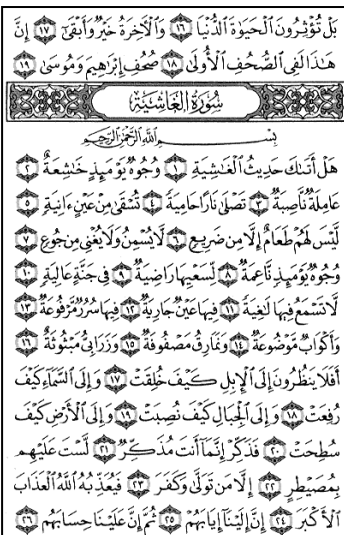 بَلْ تُؤْثِرُونَ ٱلْحَيَوٰةَ ٱلدُّنْيَا ١٦ وَٱلْأَخِرَةُ خَيْرٌ وَأَبْقَىٰٓ ١٧ إِنَّ
هَـٰذَا لَفِى ٱلصُّحُفِ ٱلْأُولَىٰ ١٨ صُحُفِ إِبْرَٰهِيمَ وَمُوسَىٰ ١٩
سُورَةُ الْغَاشِيَةِ
بِسْمِ ٱللَّهِ ٱلرَّحْمَـٰنِ ٱلرَّحِيمِ
هَلْ أَتَىٰكَ حَدِيثُ ٱلْغَـٰشِيَةِ ١ وُجُوهٌ يَوْمَئِذٍ خَـٰشِعَةٌ ٢
عَامِلَةٌ نَّاصِبَةٌ ٣ تَصْلَىٰ نَارًا حَامِيَةً ٤ تُسْقَىٰ مِنْ عَيْنٍ ءَانِيَةٍ ٥
لَّيْسَ لَهُمْ طَعَامٌ إِلَّا مِن ضَرِيعٍ ٦ لَّا يُسْمِنُ وَلَا يُغْنِى مِن جُوعٍ ٧
وُجُوهٌ يَوْمَئِذٍ نَّاعِمَةٌ ٨ لِّسَعْيِهَا رَاضِيَةٌ ٩ فِى جَنَّةٍ عَالِيَةٍ ١٠
لَّا تَسْمَعُ فِيهَا لَـٰغِيَةً ١١ فِيهَا عَيْنٌ جَارِيَةٌ ١٢ فِيهَا سُرُرٌ مَّرْفُوعَةٌ ١٣
وَأَكْوَابٌ مَّوْضُوعَةٌ ١٤ وَنَمَارِقُ مَصْفُوفَةٌ ١٥ وَزَرَابِىُّ مَبْثُوثَةٌ ١٦
أَفَلَا يَنظُرُونَ إِلَى ٱلْإِبِلِ كَيْفَ خُلِقَتْ ١٧ وَإِلَى ٱلسَّمَآءِ كَيْفَ
رُفِعَتْ ١٨ وَإِلَى ٱلْجِبَالِ كَيْفَ نُصِبَتْ ١٩ وَإِلَى ٱلْأَرْضِ كَيْفَ
سُطِحَتْ ٢٠ فَذَكِّرْ إِنَّمَآ أَنتَ مُذَكِّرٌ ٢١ لَّسْتَ عَلَيْهِم
بِمُصَيْطِرٍ ٢٢ إِلَّا مَن تَوَلَّىٰ وَكَفَرَ ٢٣ فَيُعَذِّبُهُ ٱللَّهُ ٱلْعَذَابَ
ٱلْأَكْبَرَ ٢٤ إِنَّ إِلَيْنَآ إِيَابَهُمْ ٢٥ ثُمَّ إِنَّ عَلَيْنَا حِسَابَهُم ٢٦